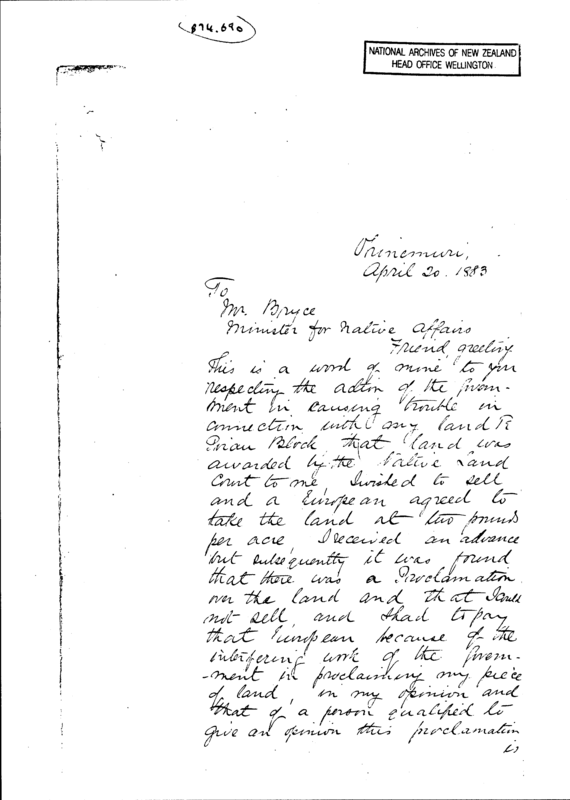 874.690
NATIONAL ARCHIVES OF NEW ZEALAND
HEAD OFFICE WELLINGTON
Ohinemuri,
April 20. 1883
To
Mr. Bryce
Minister for Native Affairs
Friend, greeting
This is a word of mine to you
respecting the action of the Govern-
ment in causing trouble in
connection with my land Te
Block that land was
awarded by the Native Land
Court to me, I wished to sell
and a European agreed to
take the land at two pounds
per acre I received an advance
but subsequently it was found
that there was a Proclamation
over the land and that I could
not sell, and I had to pay
that European because of the
interfering work of the Govern-
-ment in proclaiming my piece
of land, in my opinion and
that of a person qualified to
give an opinion this proclamation
is